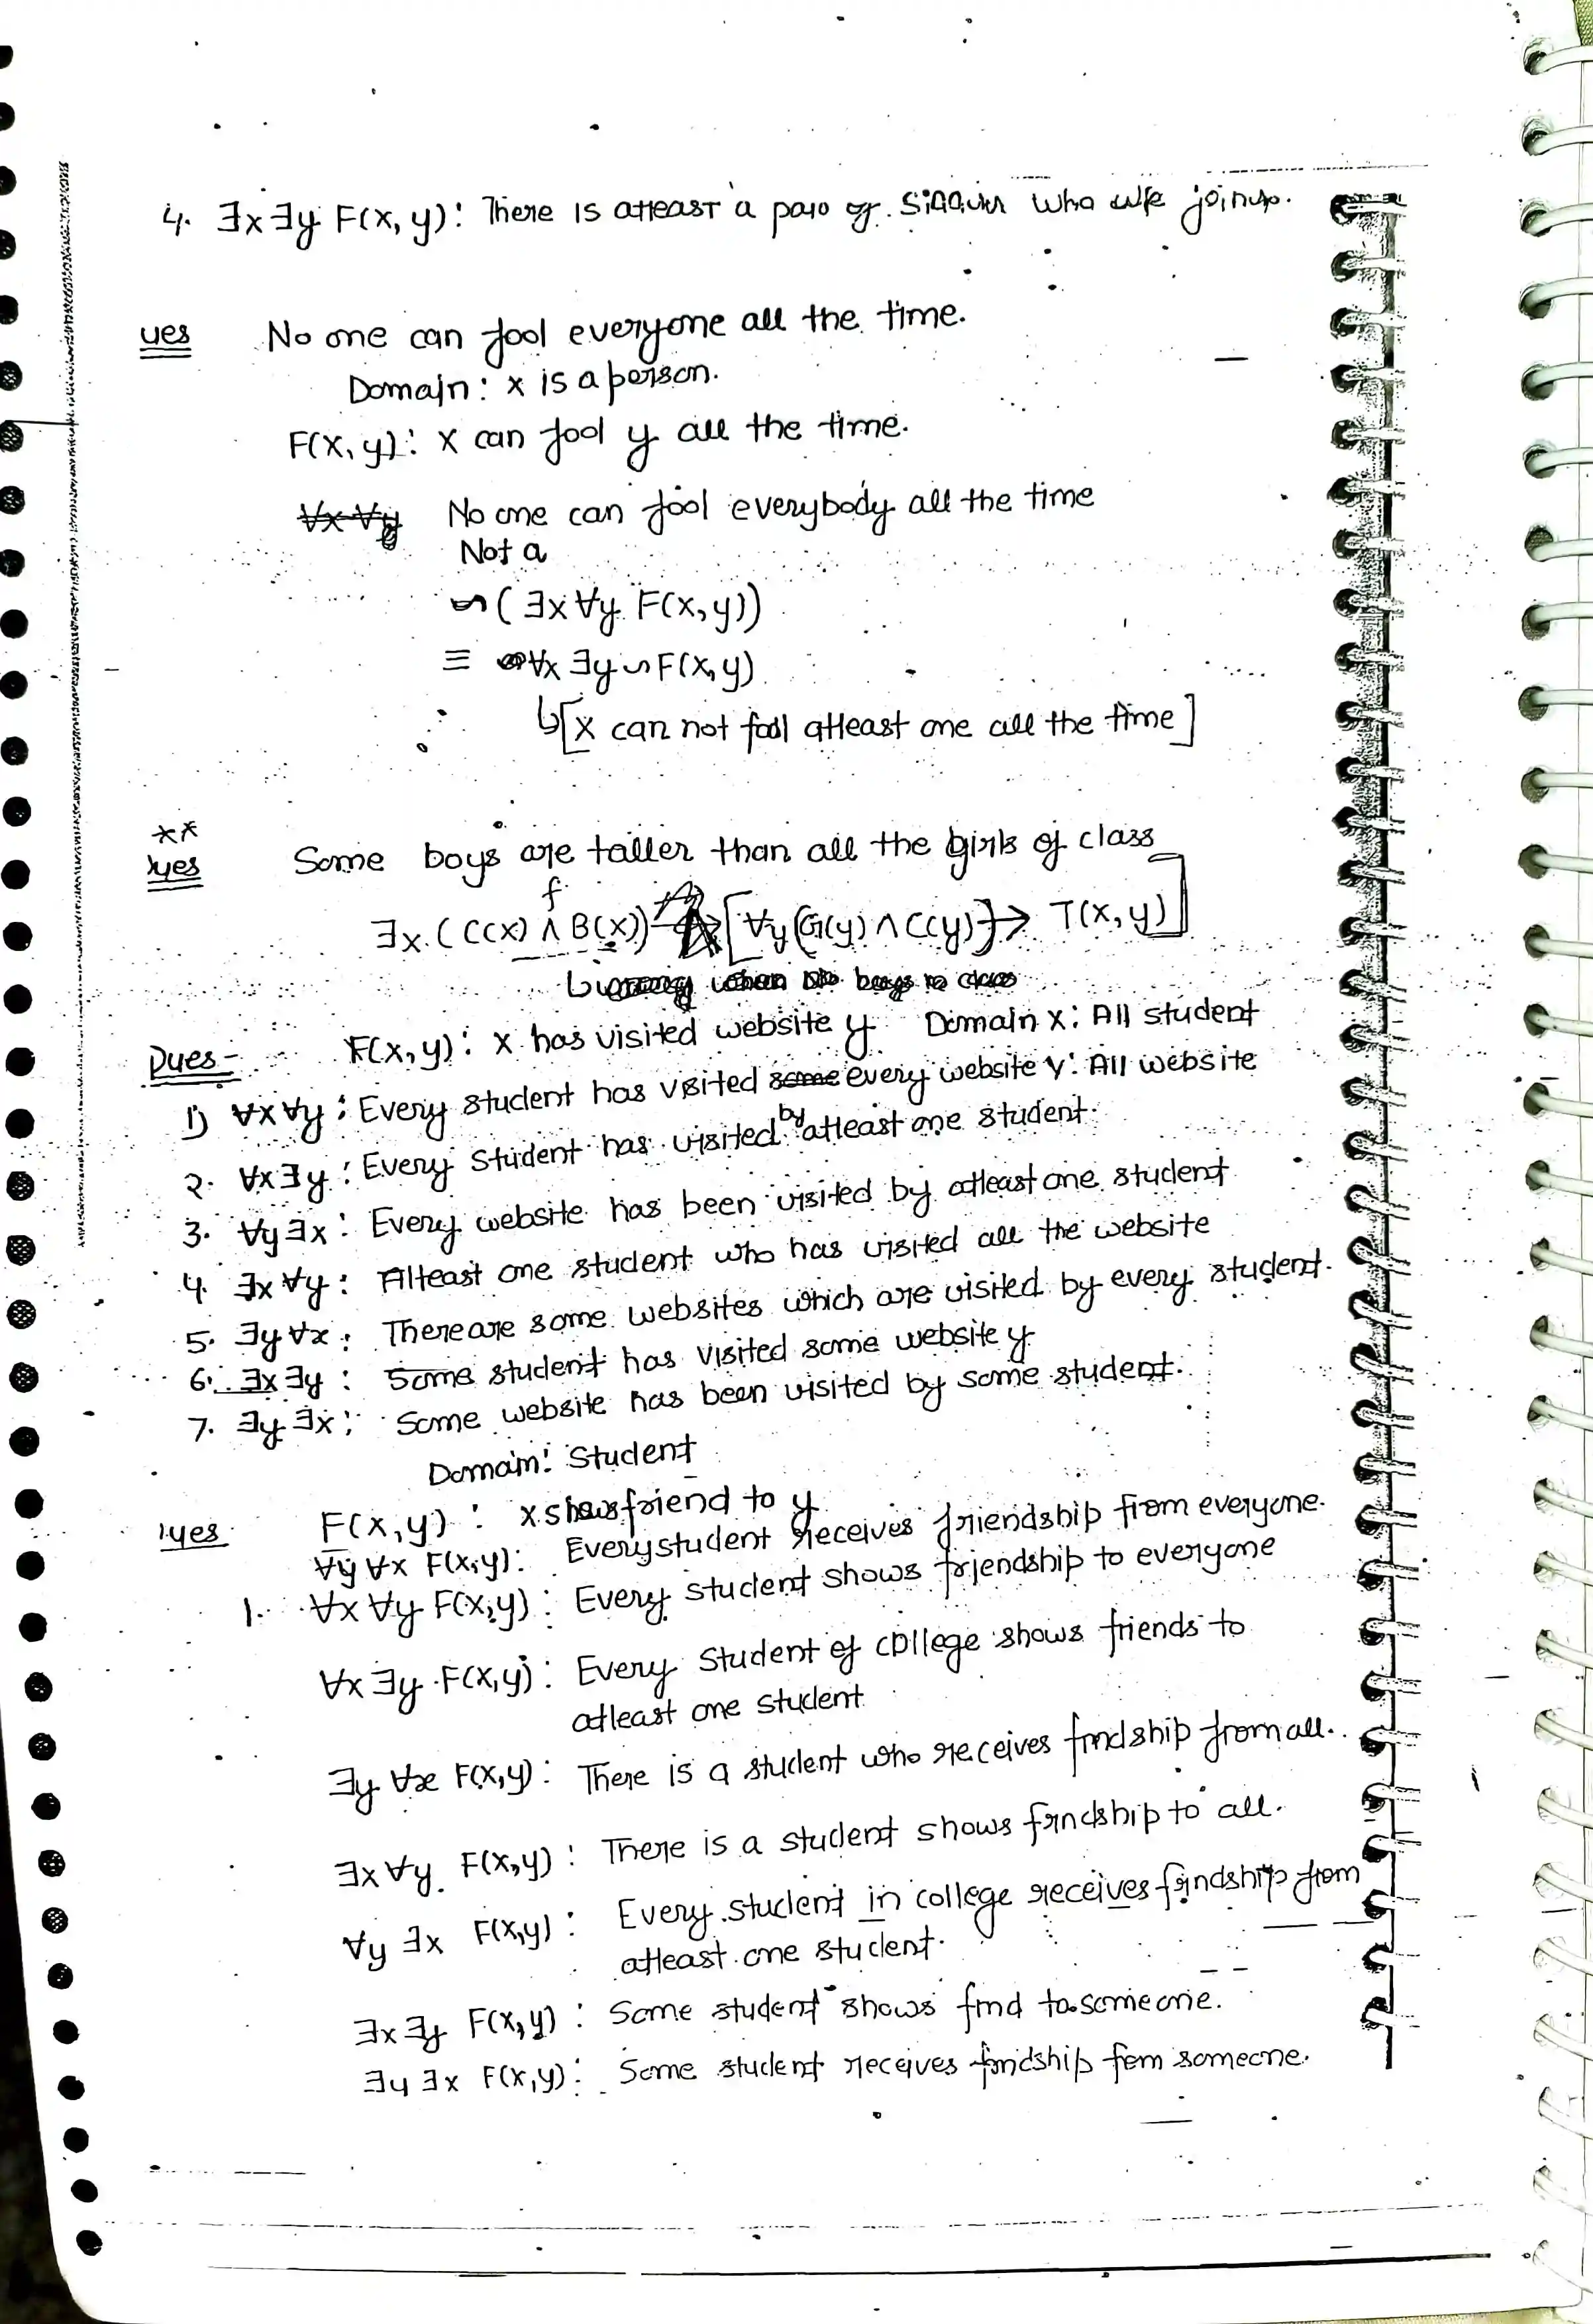 4. ∃x∃y F(x, y): There is atleast a pair of who
ques No one can fool everyone all the time.
Domain: x is a person.
F(x, y): x can fool y all the time.
∀x ∀y No one can fool everybody all the time
Not a
~(∃x∀y F(x,y))
≡ ∀x ∃y ~F(x,y)
↳[x can not fool atleast one all the time]
**
ques Some boys are taller than all the girls of class
∃x (C(x) ∧ B(x)) [∀y(G(y) ∧ C(y)) → T(x, y)]
↳ wrong when no boys in class
Ques- F(x, y): x has visited website y Domain x: All student
1) ∀x∀y: Every student has visited some every website Y: All website
2. ∀x∃y: Every student has visited by atleast one student.
3. ∀y∃x: Every website has been visited by atleast one student
4. ∃x∀y: Alteast one student who has visited all the website
5. ∃y∀x: There are some websites which are visited by every student.
6. ∃x∃y: Some student has visited some website y
7. ∃y∃x: Some website has been visited by some student.
Domain: Student
ques F(x, y): x shows friend to y
∀y ∀x F(x, y): Every student receives friendship from everyone.
1. ∀x ∀y F(x, y): Every student shows friendship to everyone
∀x ∃y F(x, y): Every student of college shows friends to
atleast one student
∃y ∀x F(x, y): There is a student who receives frndship from all.
∃x ∀y F(x, y): There is a student shows frndship to all.
∀y ∃x F(x, y): Every student in college receives frndship from
atleast one student.
∃x ∃y F(x, y): Some student shows frnd to someone.
∃y ∃x F(x, y): Some student receives frndship fem someone.